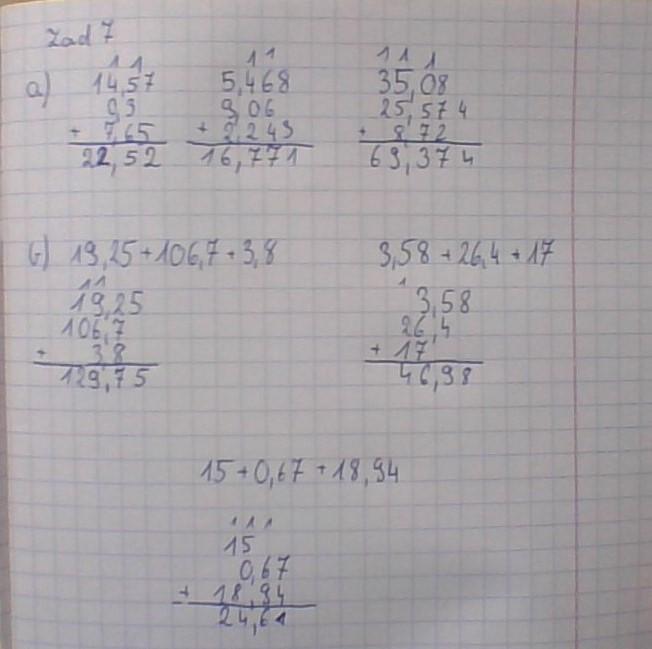 Zad 7
a)
1 1
14,57
9,3
+ 7,65
22,52
1 1
5,468
9,06
+ 2,243
16,771
1 1 1
35,08
25,574
+ 8,72
69,374
b) 19,25+106,7+3,8
1 1
19,25
106,7
+ 3,8
129,75
3,58+26,4+17
1
3,58
26,4
+ 17
46,98
15+0,67+18,94
1 1 1
15
0,67
+ 18,94
24,61